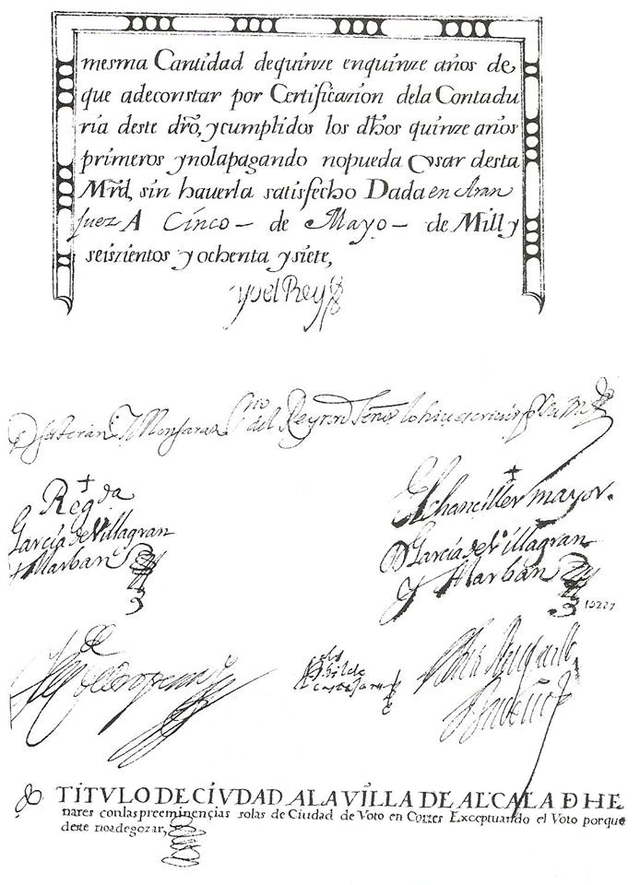 mesma Cantidad dequinze enquinze años de
que adeconstar por Certificazion dela Contadu
ria deste dro, y cumplidos los dhos quinze años
primeros ynolapagando nopueda Vsar desta
Mrd, sin hauerla satisfecho Dada en Aran
juez A Cinco - de Mayo - de Mill y
seiszientos y ochenta ysiete,
Yo el Rey
del Rey nro Señor lo hiu escriuir
Regda
García de Villagran
y Marban
El chanciller mayor.
D García de Villagran
y Marban
TÍTVLO DE CÍVDAD A LA VÍLLA DE ALCALA Đ HE
nares conlas preeminençias solas de Ciudad de Voto en Cortes Exceptuando el Voto porque
deste noadegozar,